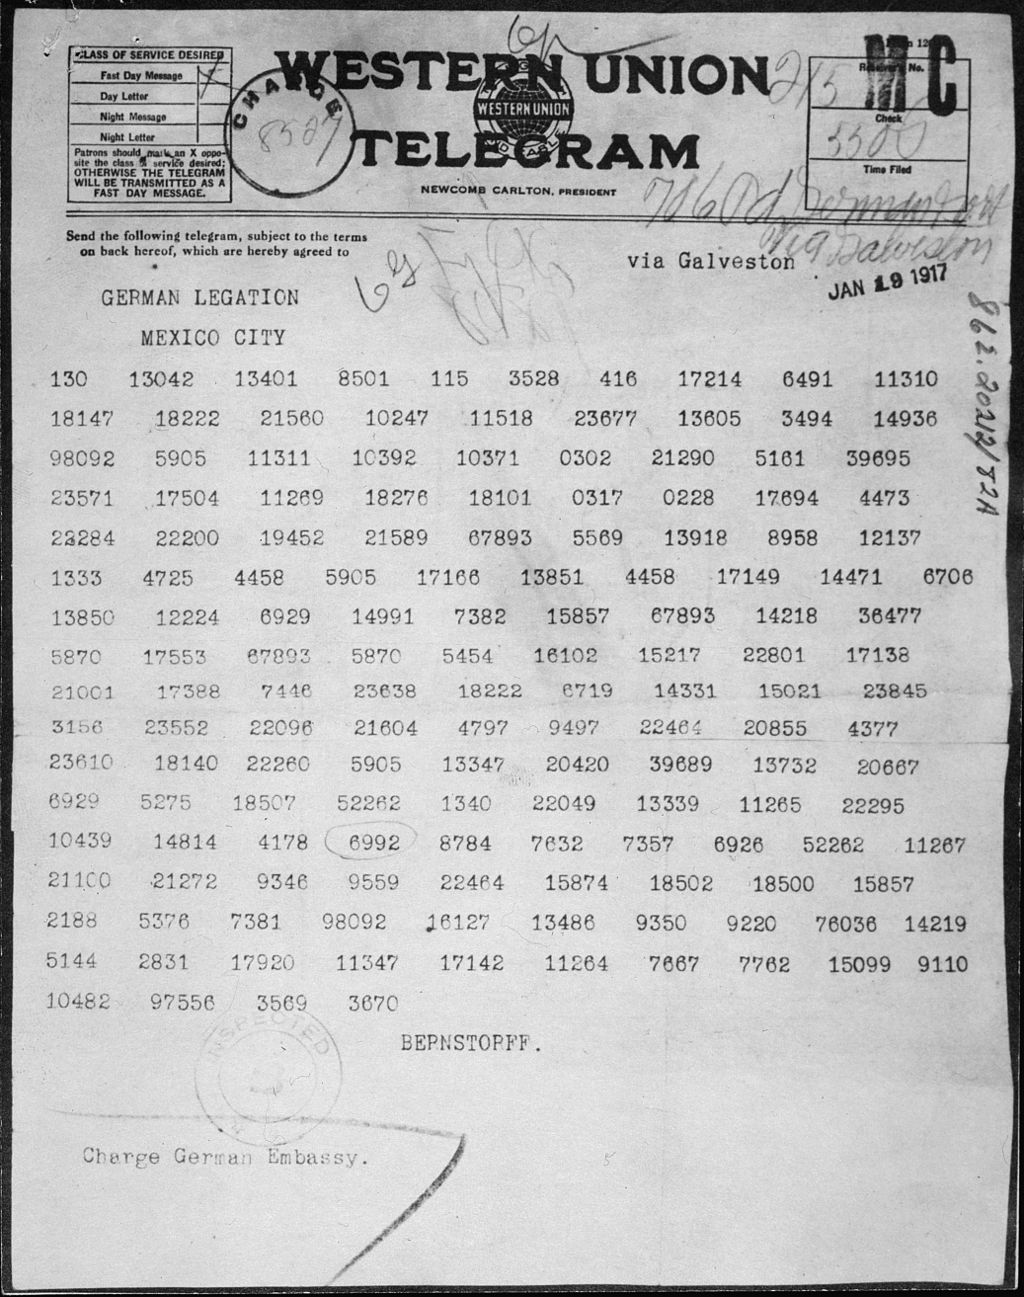 CLASS OF SERVICE DESIRED
Fast Day Message
Day Letter
Night Message
Night Letter
Patrons should mark an X oppo-
site the class of service desired;
OTHERWISE THE TELEGRAM
WILL BE TRANSMITTED AS A
FAST DAY MESSAGE.
CHARGE
WESTERN UNION
WESTERN UNION
TELEGRAM
NEWCOMB CARLTON, PRESIDENT
MC
Receiver's No.
Check
Time Filed
215
Send the following telegram, subject to the terms
on back hereof, which are hereby agreed to
via Galveston
via Galveston
JAN 19 1917
862.20212/82A
GERMAN LEGATION
MEXICO CITY
130 13042 13401 8501 115 3528 416 17214 6491 11310
18147 18222 21560 10247 11518 23677 13605 3494 14936
98092 5905 11311 10392 10371 0302 21290 5161 39695
23571 17504 11269 18276 18101 0317 0228 17694 4473
22284 22200 19452 21589 67893 5569 13918 8958 12137
1333 4725 4458 5905 17166 13851 4458 17149 14471 6706
13850 12224 6929 14991 7382 15857 67893 14218 36477
5870 17553 67893 5870 5454 16102 15217 22801 17138
21001 17388 7446 23638 18222 6719 14331 15021 23845
3156 23552 22096 21604 4797 9497 22464 20855 4377
23610 18140 22260 5905 13347 20420 39689 13732 20667
6929 5275 18507 52262 1340 22049 13339 11265 22295
10439 14814 4178 6992 8784 7632 7357 6926 52262 11267
21100 21272 9346 9559 22464 15874 18502 18500 15857
2188 5376 7381 98092 16127 13486 9350 9220 76036 14219
5144 2831 17920 11347 17142 11264 7667 7762 15099 9110
10482 97556 3569 3670
BEPNSTOPFF.
INSPECTED
Charge German Embassy.